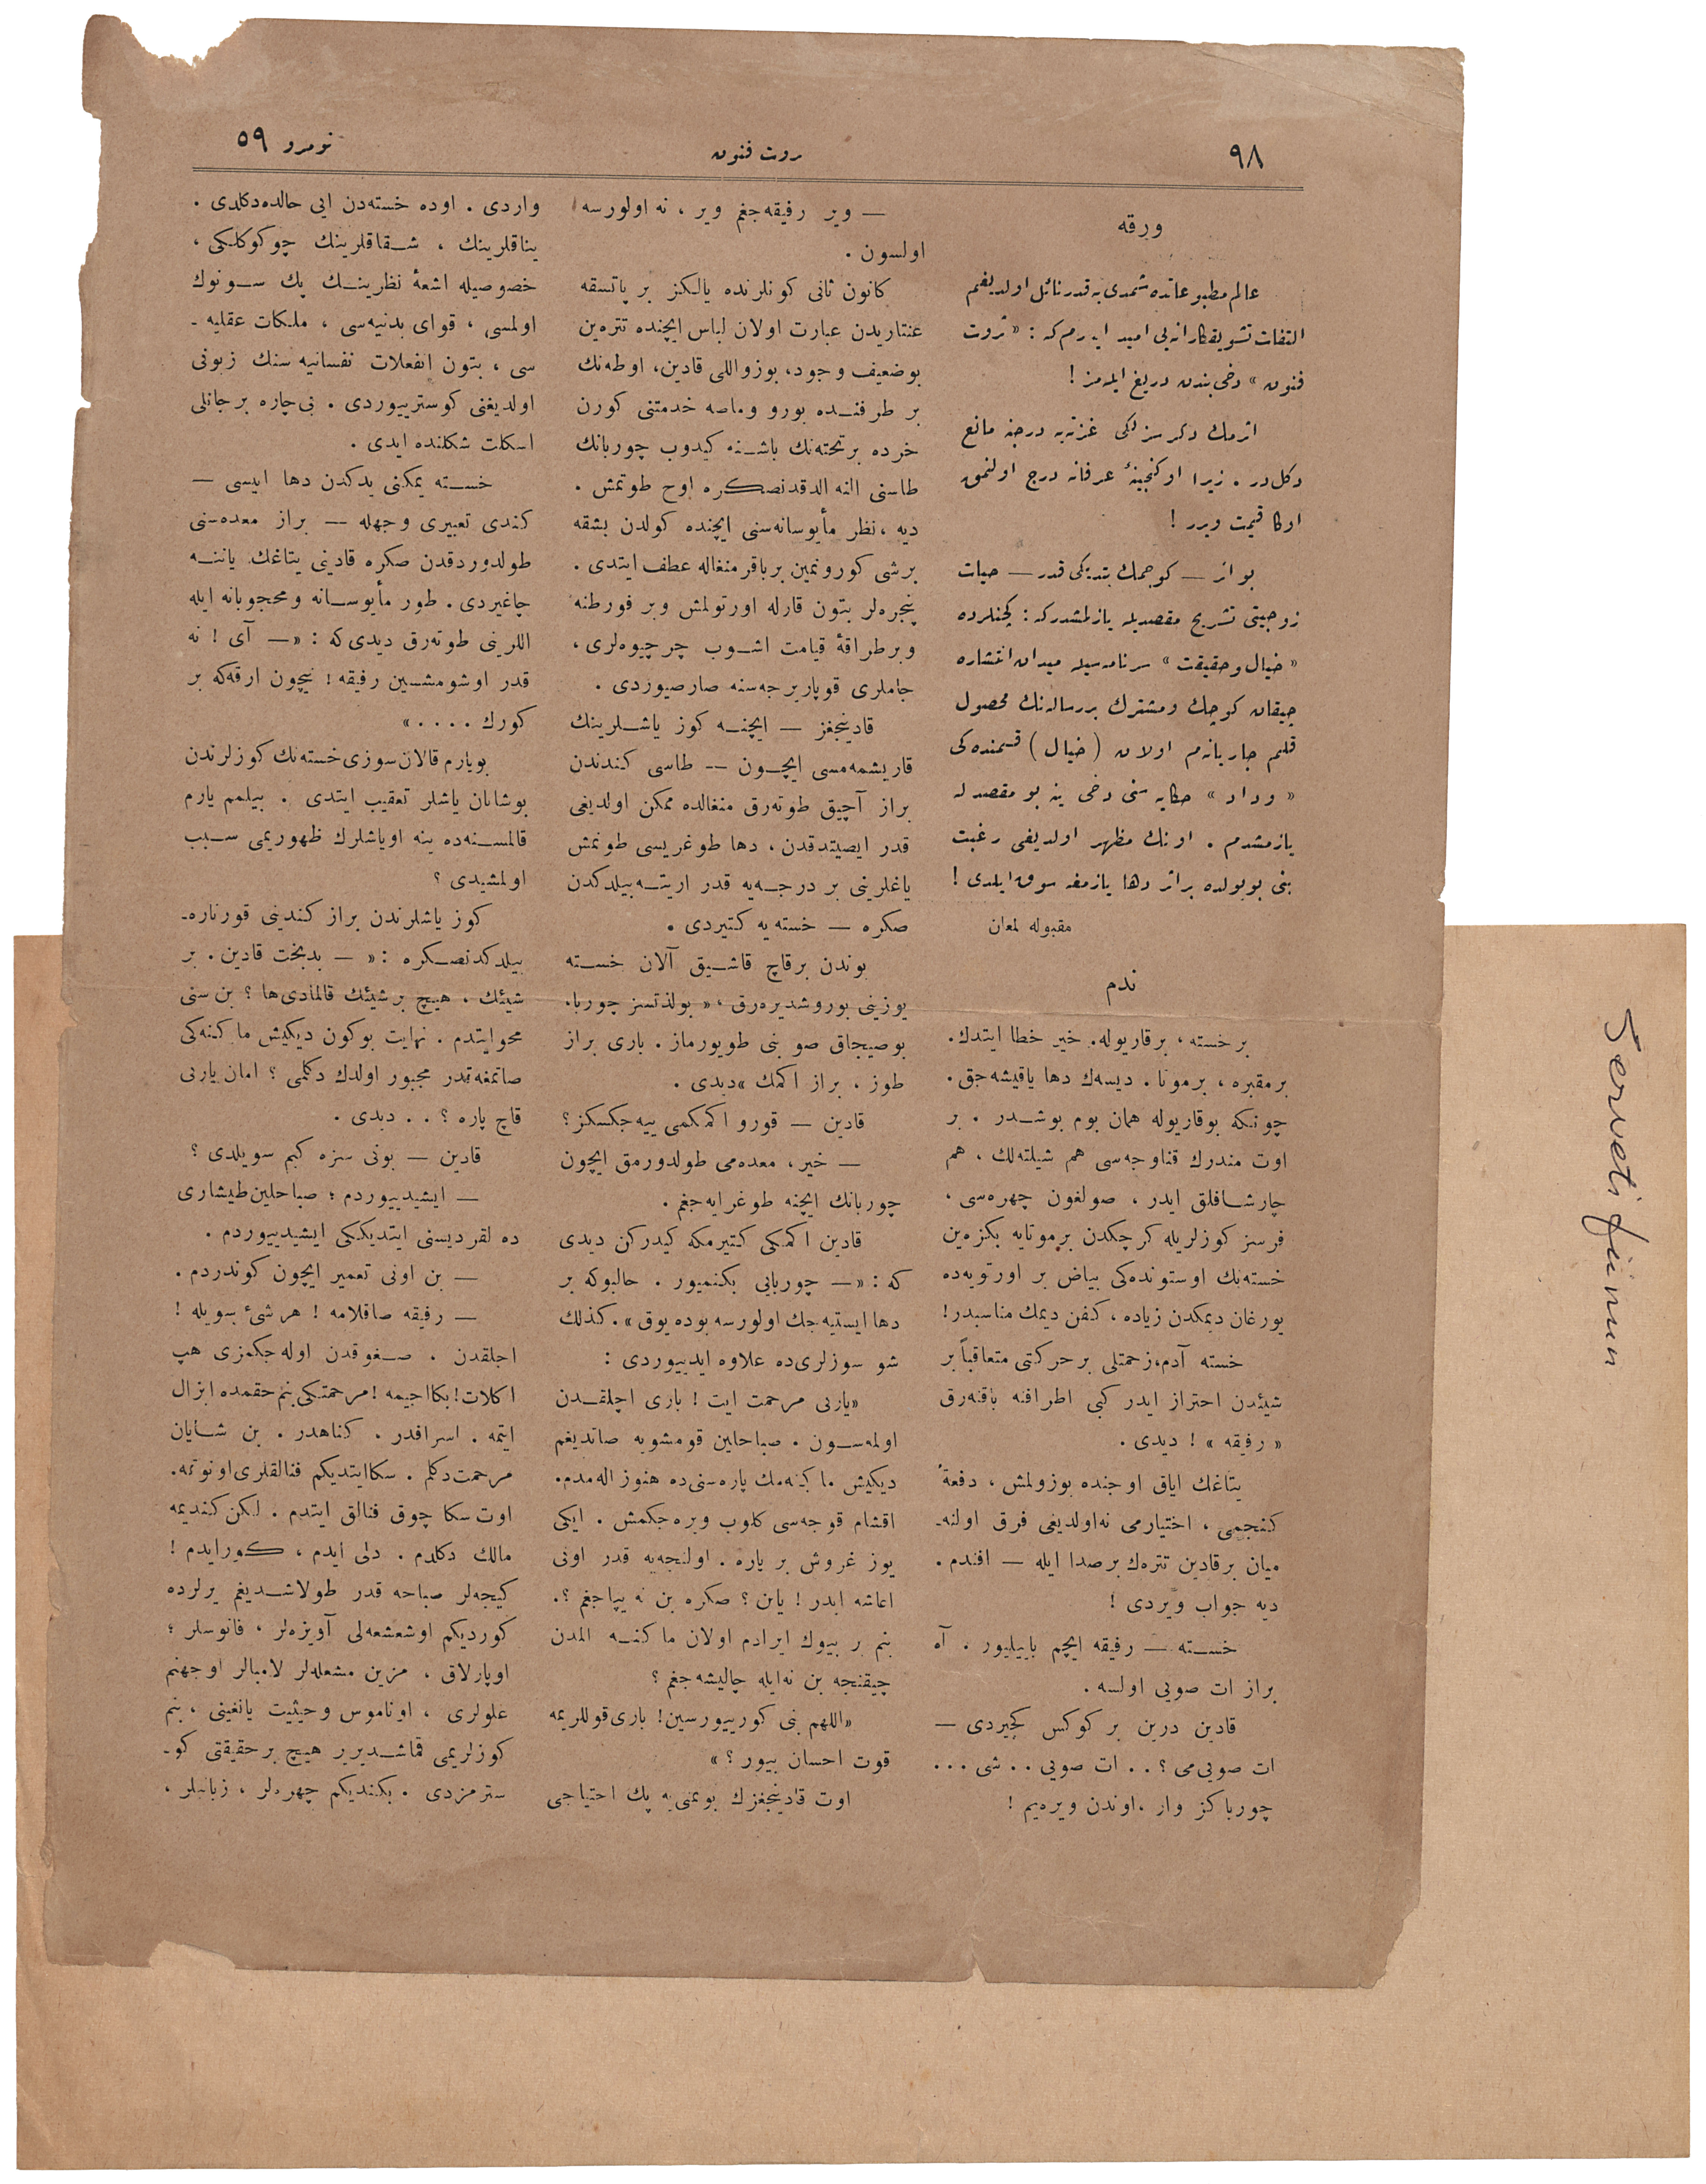 ٩٨
ثروت فنون
نومرو ٥٩
ورقه
عالم مطبوعاتده شمدی‌یه قدر نائل اولدیغم
التفات تشویقکارانه‌یی امید ایدرم که : « ثروت
فنون » دخی بندن دریغ ایلمز !
اثرمك دکرسزلکی غزته‌یه درجنه مانع
دکل‌در . زیرا او کنجینهٔ عرفانه درج اولنمق
اوکا قیمت ویرر !
بو اثر — کوجمك یتدیکی قدر — حیات
زوجیتی تشریح مقصدیله یازلمشدرکه : کچنلرده
« خیال و حقیقت » سرنامه‌سیله میدان انتشاره
چیقان کوچك و مشترك بر رساله‌نك محصول
قلم جاریانه‌م اولان ( خیال ) قسمنده‌کی
« وداد » حکایه سنی دخی ینه بو مقصدله
یازمشدم . اونك مظهر اولدیغی رغبت
بنی بو یولده بر اثر دها یازمغه سوق ایلدی !
مقبوله لمعان
ندم
بر خسته ، بر قاریوله. خیر خطا ایتدك.
بر مقبره ، بر موتا . دیسه‌ك دها یاقیشه‌جق.
چونکه بو قاریوله همان بوم بوشـدر . بر
اوت مندرك قناوجه‌سی هم شیلته‌لك ، هم
چارشـافلق ایدر ، صولغون چهره‌سی ،
فرسز کوزلریله کرچکدن بر موتایه بکزه‌ین
خسته‌نك اوستونده‌کی بیاض بر اورتویه‌ده
یورغان دیمکدن زیاده ، کفن دیمك مناسبدر!
خسته آدم، زحمتلی بر حرکتی متعاقباً بر
شیئدن احتراز ایدر کبی اطرافنه باقنه‌رق
« رفیقه » ! دیدی .
یتاغك ایاق اوجنده بوزولمش ، دفعةً
کنجمی ، اختیارمی نه‌اولدیغی فرق اولنه‌ـ
میان بر قادین تتره‌ك بر صدا ایله — افندم .
دیه جواب ویردی !
خسـته — رفیقه ایچم بایلیور . آه
براز ات صویی اولسه .
قادین درین بر کوکس کچیردی —
ات صویی‌می ؟ . . ات صویی . . شی . . .
چورباکز وار . اوندن ویره‌یم !
— ویر رفیقه‌جغم ویر ، نه اولورسه
اولسون .
کانون ثانی کونلرنده یالکز بر پاتسقه
عنتاریدن عبارت اولان لباس ایچنده تتره‌ین
بو ضعیف وجود، بوزواللی قادین، اوطه‌نك
بر طرفنـده بورو و ماصه خدمتنی کورن
خرده بر تخته‌نك باشـنه کیدوب چوربانك
طاسنی النه الدقدنصکره اوح طوتمش .
دیه ، نظر مأیوسانه‌سنی ایچنده کولدن بشقه
بر شی کورونمین بر باقر منغاله عطف ایتدی .
پنجره‌لر بتون قارله اورتولمش و بر فورطنه
و بر طراقهٔ قیامت اشـوب چرچیوه‌لری ،
جاملری قوپاریرجه‌سنه صارصیوردی .
قادینجغز — ایچنـه کوز یاشـلرینك
قاریشمه‌مسی ایچـون — طاسی کندندن
براز آچیق طوته‌رق منغالده ممکن اولدیغی
قدر ایصیتدقدن ، دها طوغریسی طوکمش
یاغلرینی بر درجـه‌یه قدر اریتـه‌بیلدکدن
صکره — خسته‌یه کتیردی .
بوندن برقاچ قاشـیق آلان خسـته
یوزینی بوروشدیره‌رق ، « بولذتسز چوربا،
بو صیجاق صو بنی طویورماز . باری براز
طوز ، براز اکمك » دیدی .
قادین — قورو اکمکمی ییه‌جکسکز؟
— خیر، معده‌می طولدورمق ایچون
چوربانك ایچنه طوغرایه‌جغم .
قادین اکمکی کتیرمکه کیدرکن دیدی
که : « — چوربایی بکنمیور . حالبوکه بر
دها ایستیه‌جك اولورسه بوده یوق ». کذلك
شو سوزلری‌ده علاوه ایدییوردی :
« یاربی مرحمت ایت ! باری اچلقـدن
اولمه‌سـون . صباحلین قومشویه صاتدیغم
دیکیش ماکنه‌مك پاره‌سنی‌ده هنوز اله‌مدم.
اقشام قوجه‌سی کلوب ویره‌جکمش . ایکی
یوز غروش بر پاره . اولنجه‌یه قدر اونی
اعاشه ایدر ! یابن ؟ صکره بن نه یپاجغم ؟.
بنم بر بیوك ایرادم اولان ماکنـه المدن
چیقنجه بن نه‌ایله چالیشه‌جغم ؟
« اللهم بنی کورییورسین! باری قوللریمه
قوت احسان بیور ؟ »
اوت قادینجغزك بویمنی‌یه پك احتیاجی
واردی . اوده خسته‌دن ایی حالده‌دکلدی .
یناقلرینك ، شـقاقلرینك چوکوکلکی ،
خصوصیله اشعهٔ نظرینـك پك سـونوك
اولمسی ، قوای بدنیه‌سی ، ملکات عقلیه ـ
سی ، بتون انفعلات نفسانیه سنك زبونی
اولدیغنی کوسترییوردی . بی‌چاره بر جانلی
اسکلت شکلنده ایدی .
خسـته یمکنی یدکدن دها اییسی —
کندی تعبیری وجهله — براز معده‌سنی
طولدوردقدن صکره قادینی یتاغك یاننـه
چاغیردی . طور مأیوسـانه و محجوبانه ایله
اللرینی طوته‌رق دیدی‌که : « — آی ! نه
قدر اوشومشسین رفیقه ! نیچون ارقه‌که بر
کورك . . . . »
بویارم قالان سوزی خسته‌نك کوزلرندن
بوشانان یاشلر تعقیب ایتدی . بیلمم یارم
قالمسـنه‌ده ینه اویاشلرك ظهوریمی سـبب
اولمشیدی ؟
کوز یاشلرندن براز کندینی قورتاره‌ـ
بیلدکدنصـکره : « — بدبخت قادین . بر
شیئك ، هیچ بر شیئك قالمادی‌ها ؟ بن سنی
محوایتدم . نهایت بوکون دیکیش ماکنه‌کی
صاتمغه‌قدر مجبور اولدك دکلمی ؟ امان یاربی
قاچ پاره ؟ . . دیدی .
قادین — بونی سزه کیم سویلدی ؟
— ایشیدییوردم ؛ صباحلین طیشاری
ده لقردیسنی ایتدیککی ایشیدییوردم .
— بن اونی تعمیر ایچون کوندردم .
— رفیقه صاقلامه ! هر شیٔ سویله !
اجلقدن . صـغوقدن اوله‌جکمزی هپ
اکلات! بکا اجیمه ! مرحمتکی بنم حقمده ابزال
ایتمه . اسرافدر ، کناهدر . بن شـایان
مرحمت دکلم . سکا ایتدیکم فنالقلری اونوتمه.
اوت سکا چوق فنالق ایتدم . لکن کندیمه
مالك دکلدم . دلی ایدم ، کورایدم !
کیجه‌لر صباحه قدر طولاشـدیغم یرلرده
کوردیکم اوشعشعه‌لی آویزه‌لر ، فانوسلر ؛
اوپارلاق ، مزین مشعله‌لر لامبالر او جهنم
علولری ، اوناموس و حیثیت یانغینی ، بنم
کوزلریمی قماشـدیریر هیچ بر حقیقتی کوـ
سترمزدی . بکندیکم چهره‌لر ، زبانیلر ،
Serveti fünun